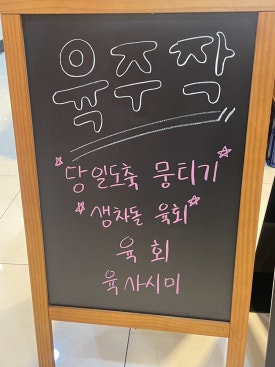 육주작
당일도축 뭉티기
생차돌 육회
육회
육사시미